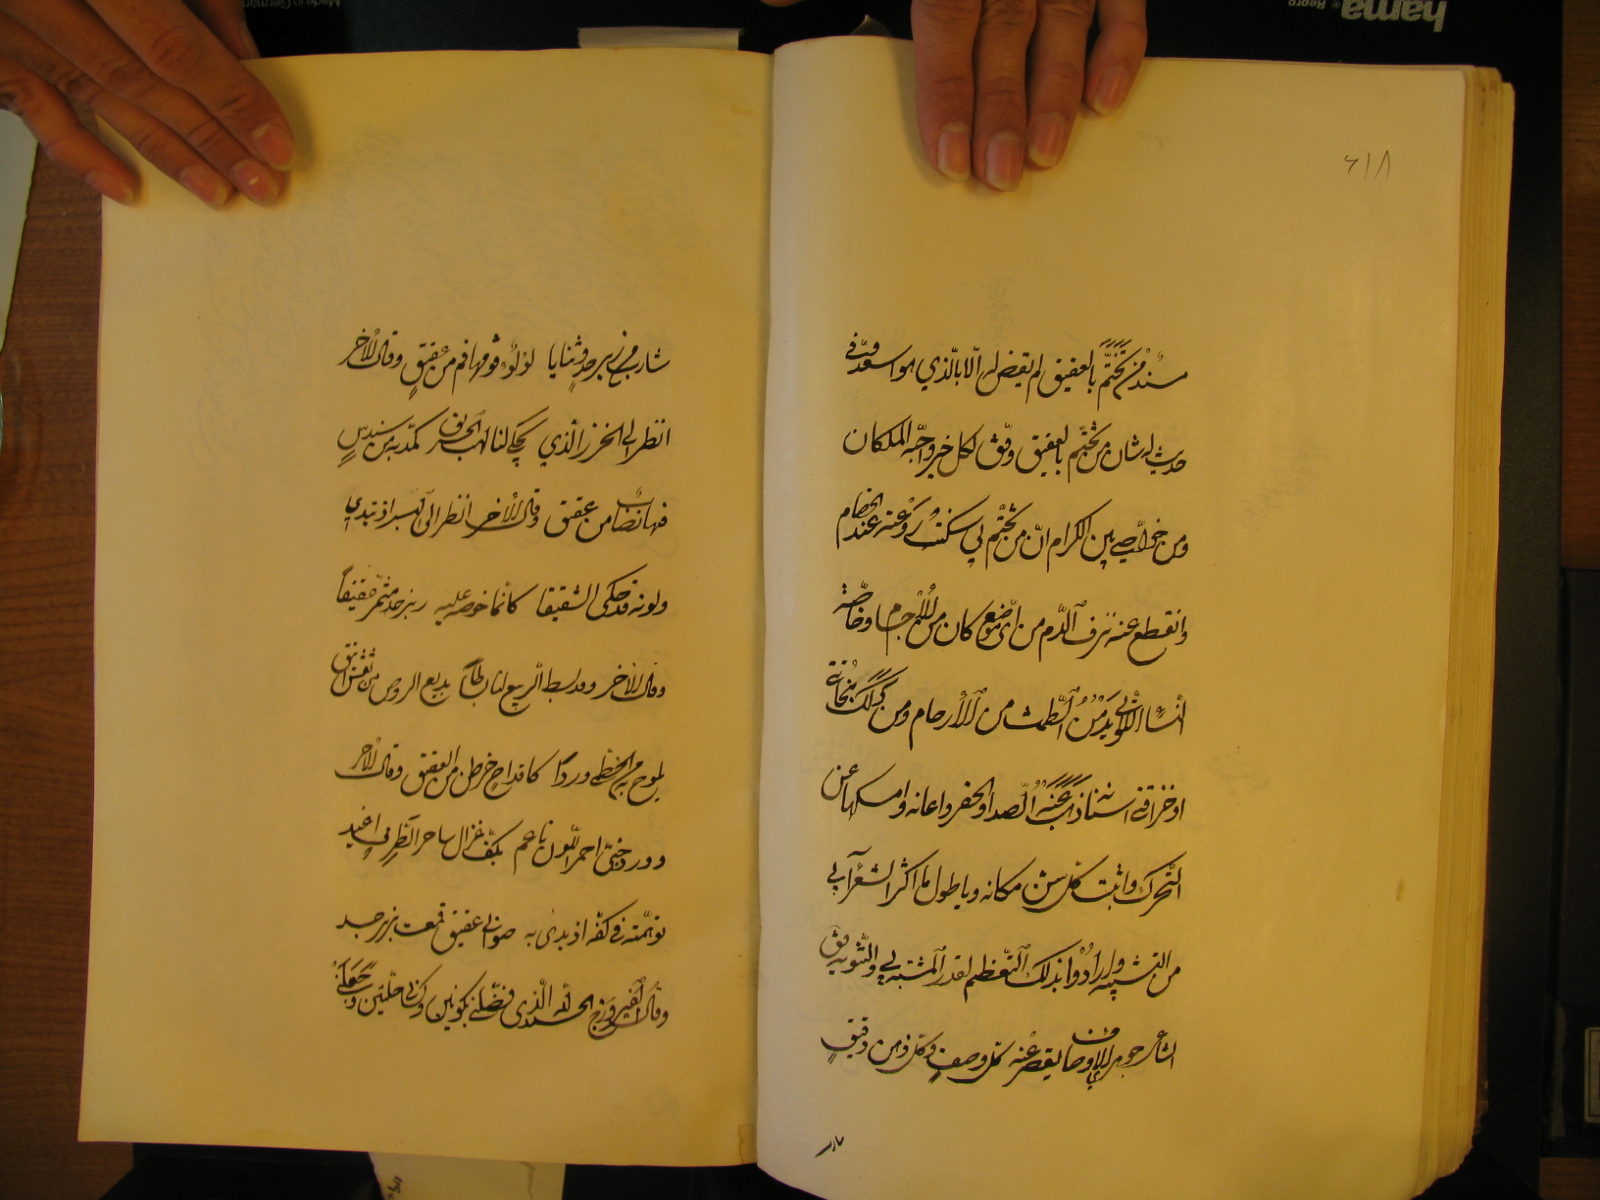 ٦١٨
مسند من تختم بالعقيق لم يقض له الا بالذي هو اسعد وفي
حديث له شان من تختم بالعقيق وفق لكل خير واحبه الملكان
ومن خواصي بين الكرام ان من تختم بي سكنت روعته عند الخصام
وانقطع عنه نزف الدم من اي موضع كان من الاجسام وخاصة
النساء اللواتي يدمن الطمث من الارحام ومن دلك بنحاتة
اسنانه اذهبت عنه الصدأ والحفر واعانه وامسكها عن
التحرك واثبت كل سن مكانه ويا طول ما اكثر الشعرآء بي
من التشبيه وارادوا بذلك التعظيم لقدر المشبه بي والتنويه
الشاعر جوهري الاوصاف يقصر عنه كل وصف وكل ذهن دقيق
شارب من زبرجد وثنايا لؤلؤ فوقها فم من عقيق وقال الآخر
انظر الى الخرز الذي يحكي لنا لهب الحريق كمدبة من سندس
فيها نصاب من عقيق وقال الآخر انظر الى اذ تبدي
ولونه قد حكى الشقيقا كانما خوصه عليه زبرجد مثمر عقيقا
وقال الآخر وقد بسط الربيع لنا بساطا بديع الروض من
يلوح به وردا كاقداح خرطن من العقيق وقال الآخر
وورد جني احمر اللون ناعم بكف غزال ساحر الطرف اغيد
توهمته في كفه اذ بدى به صواني عقيق قمعت بزبرجد
وقال الفيروزج الحمد لله الذي فضلني بكونين وكساني حلتين وجعل